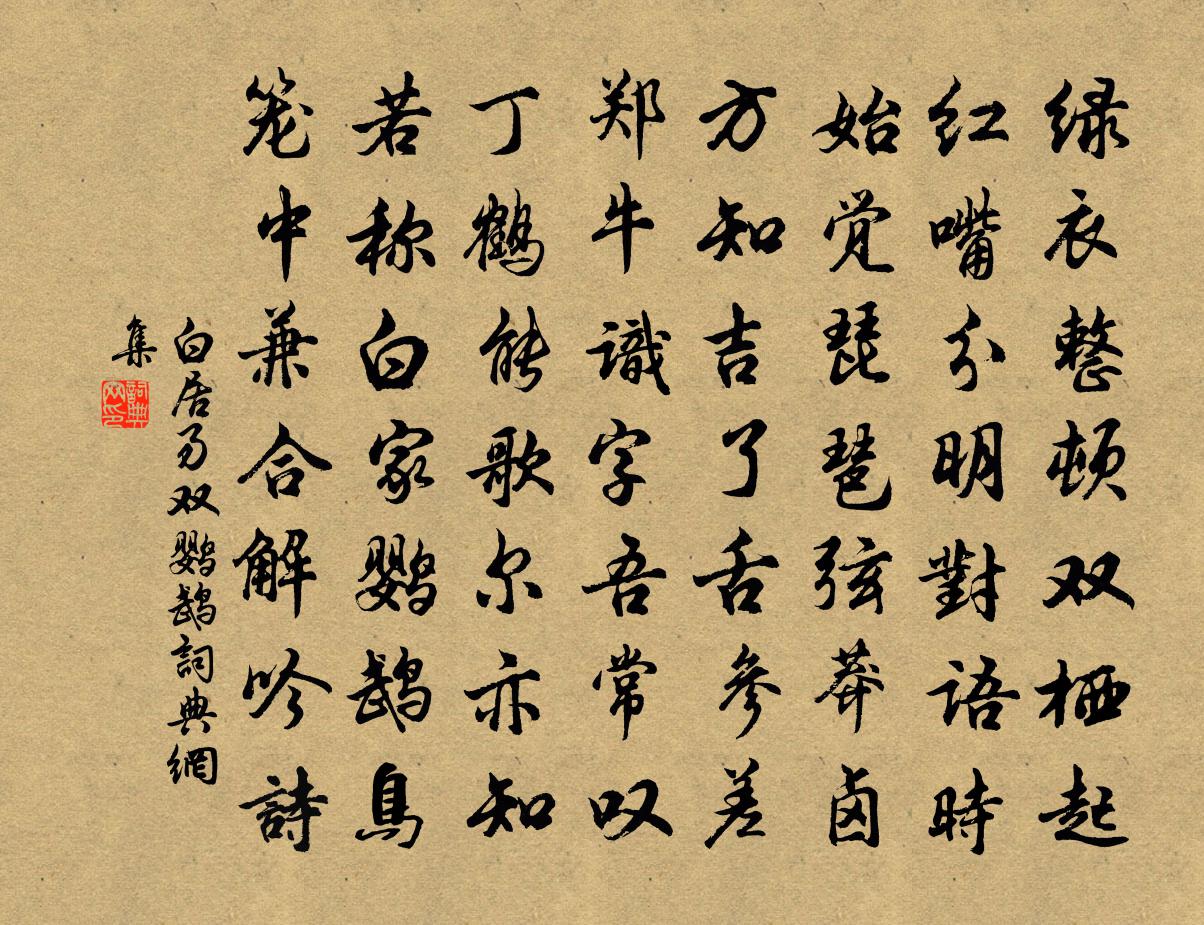 绿衣整顿双栖起
红嘴分明對语時
始觉琵琶弦莽卤
方知吉了舌参差
郑牛識字吾常叹
丁鹤能歌尔亦知
若称白家鹦鹉鳥
笼中兼合解吟詩
白居易双鹦鹉詞典網
集
詞典网印